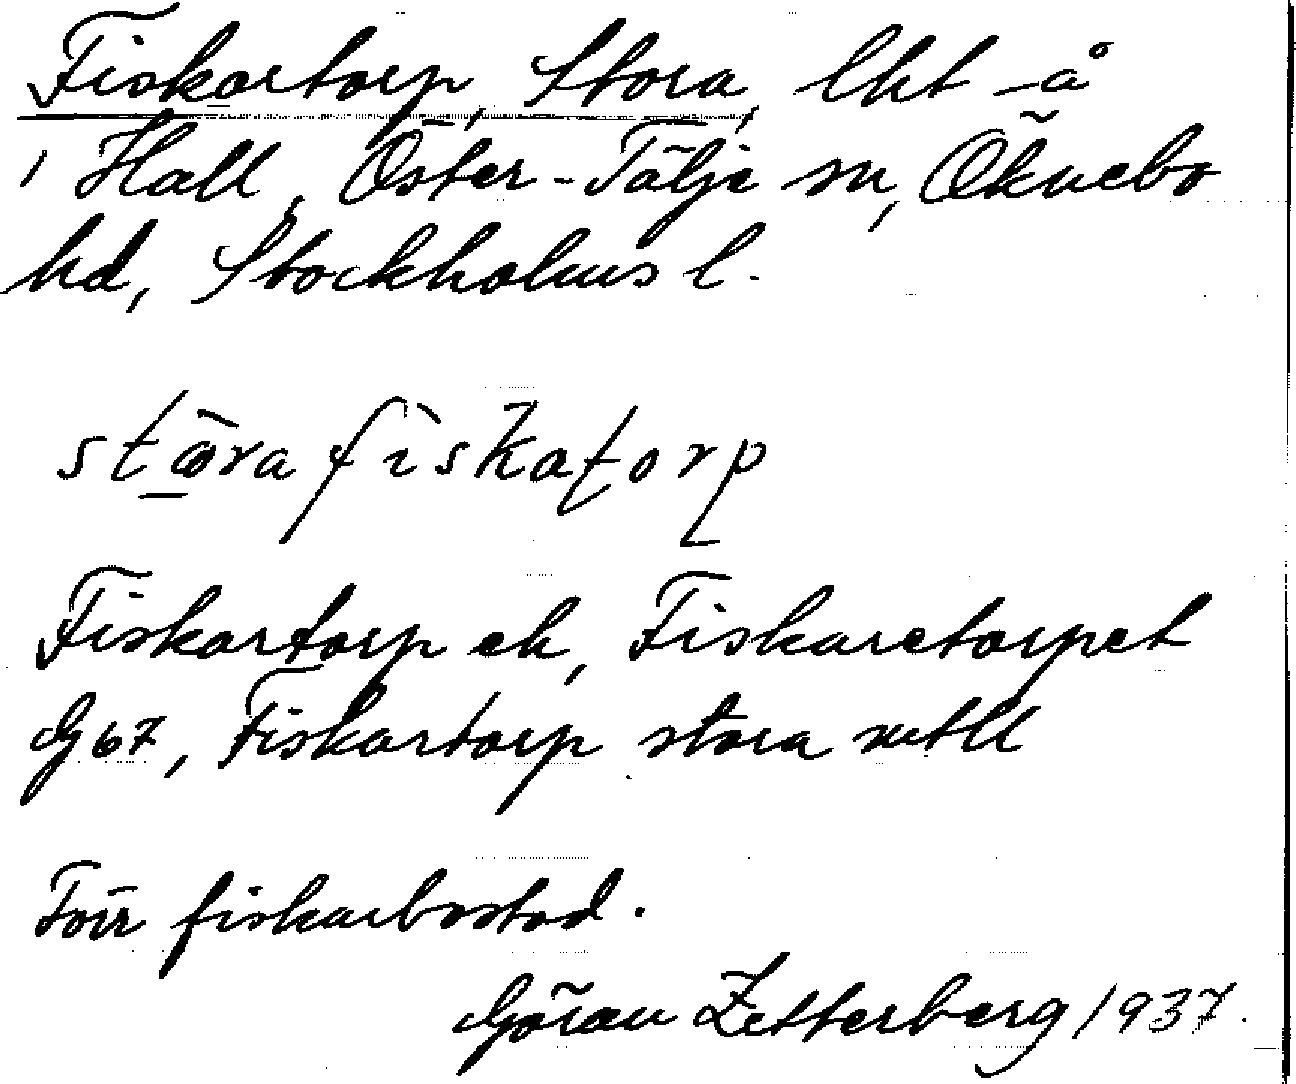 Fiskartorp, Stora, lht å
i Hall, Öster-Tälje sn, Öknebo
hd, Stockholms l.
stòra fìskatorp
Fiskartorp ek, Fiskaretorpet
G 67, Fiskartorp stora mtll
Förr fiskarbostad.
Göran Zetterberg 1937.